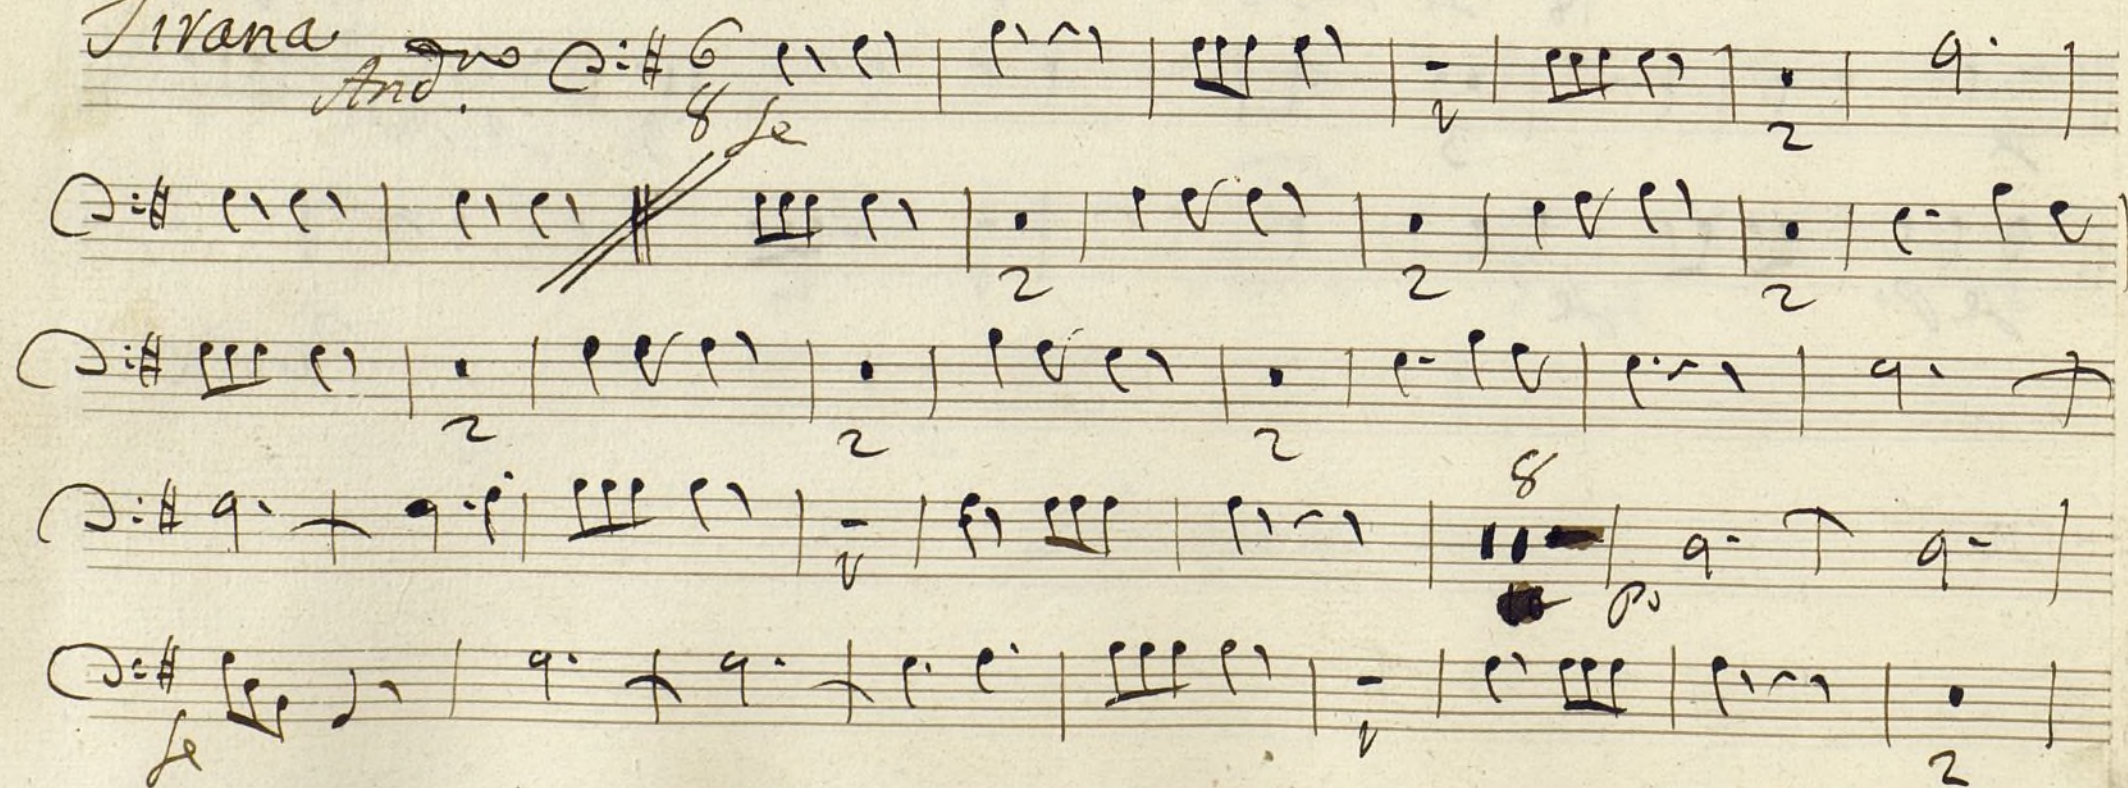 Tirana
And.no 6
8 fe
2
2 2 2
2 2 2
8
Po
fe
2